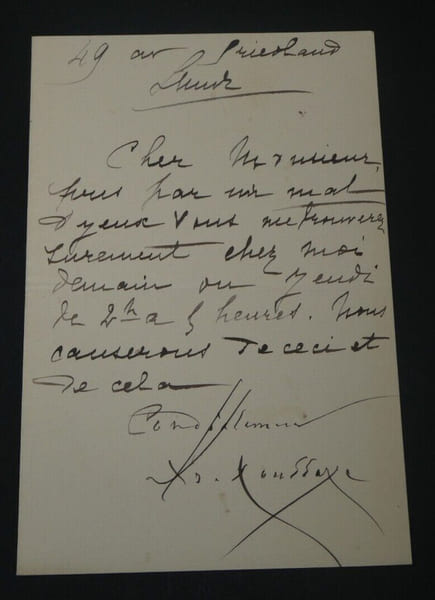 49 av Friedland
Lundi
Cher Monsieur,
pris par un mal
d'yeux vous me trouverez
surement chez moi
demain ou jeudi
de 2h a 5 heures. Nous
causerons de ceci et
de cela
Cordialement
Ar. Houssaye